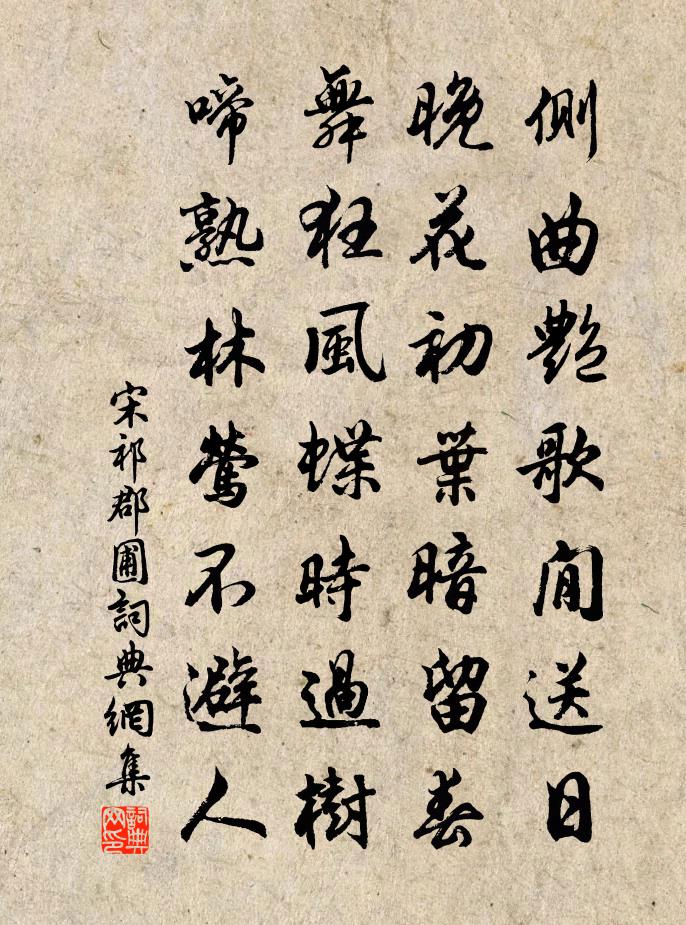 側曲艷歌閒送日
晚花初葉暗留春
舞狂風蝶時過樹
啼熟林鶯不避人
宋祁郡圃詞典網集
詞典網印